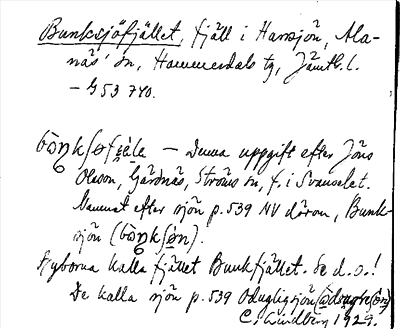 Bunksjöfjället, fjäll i Harrsjön, Ala-
näs' sn, Hammerdals tg, Jämtl. l.
– G 53 740.
– Denna uppgift efter Jöns
Olsson, Gärdnäs, Ströms sn, f. i Svaneset.
Namnet efter sjön p. 539 NV därom, Bunk-
sjön
Byborna kalla fjället Bunkfjället. Se d. o.!
De kalla sjön p. 539 Odugligsjön
C. Lindberg 1929.